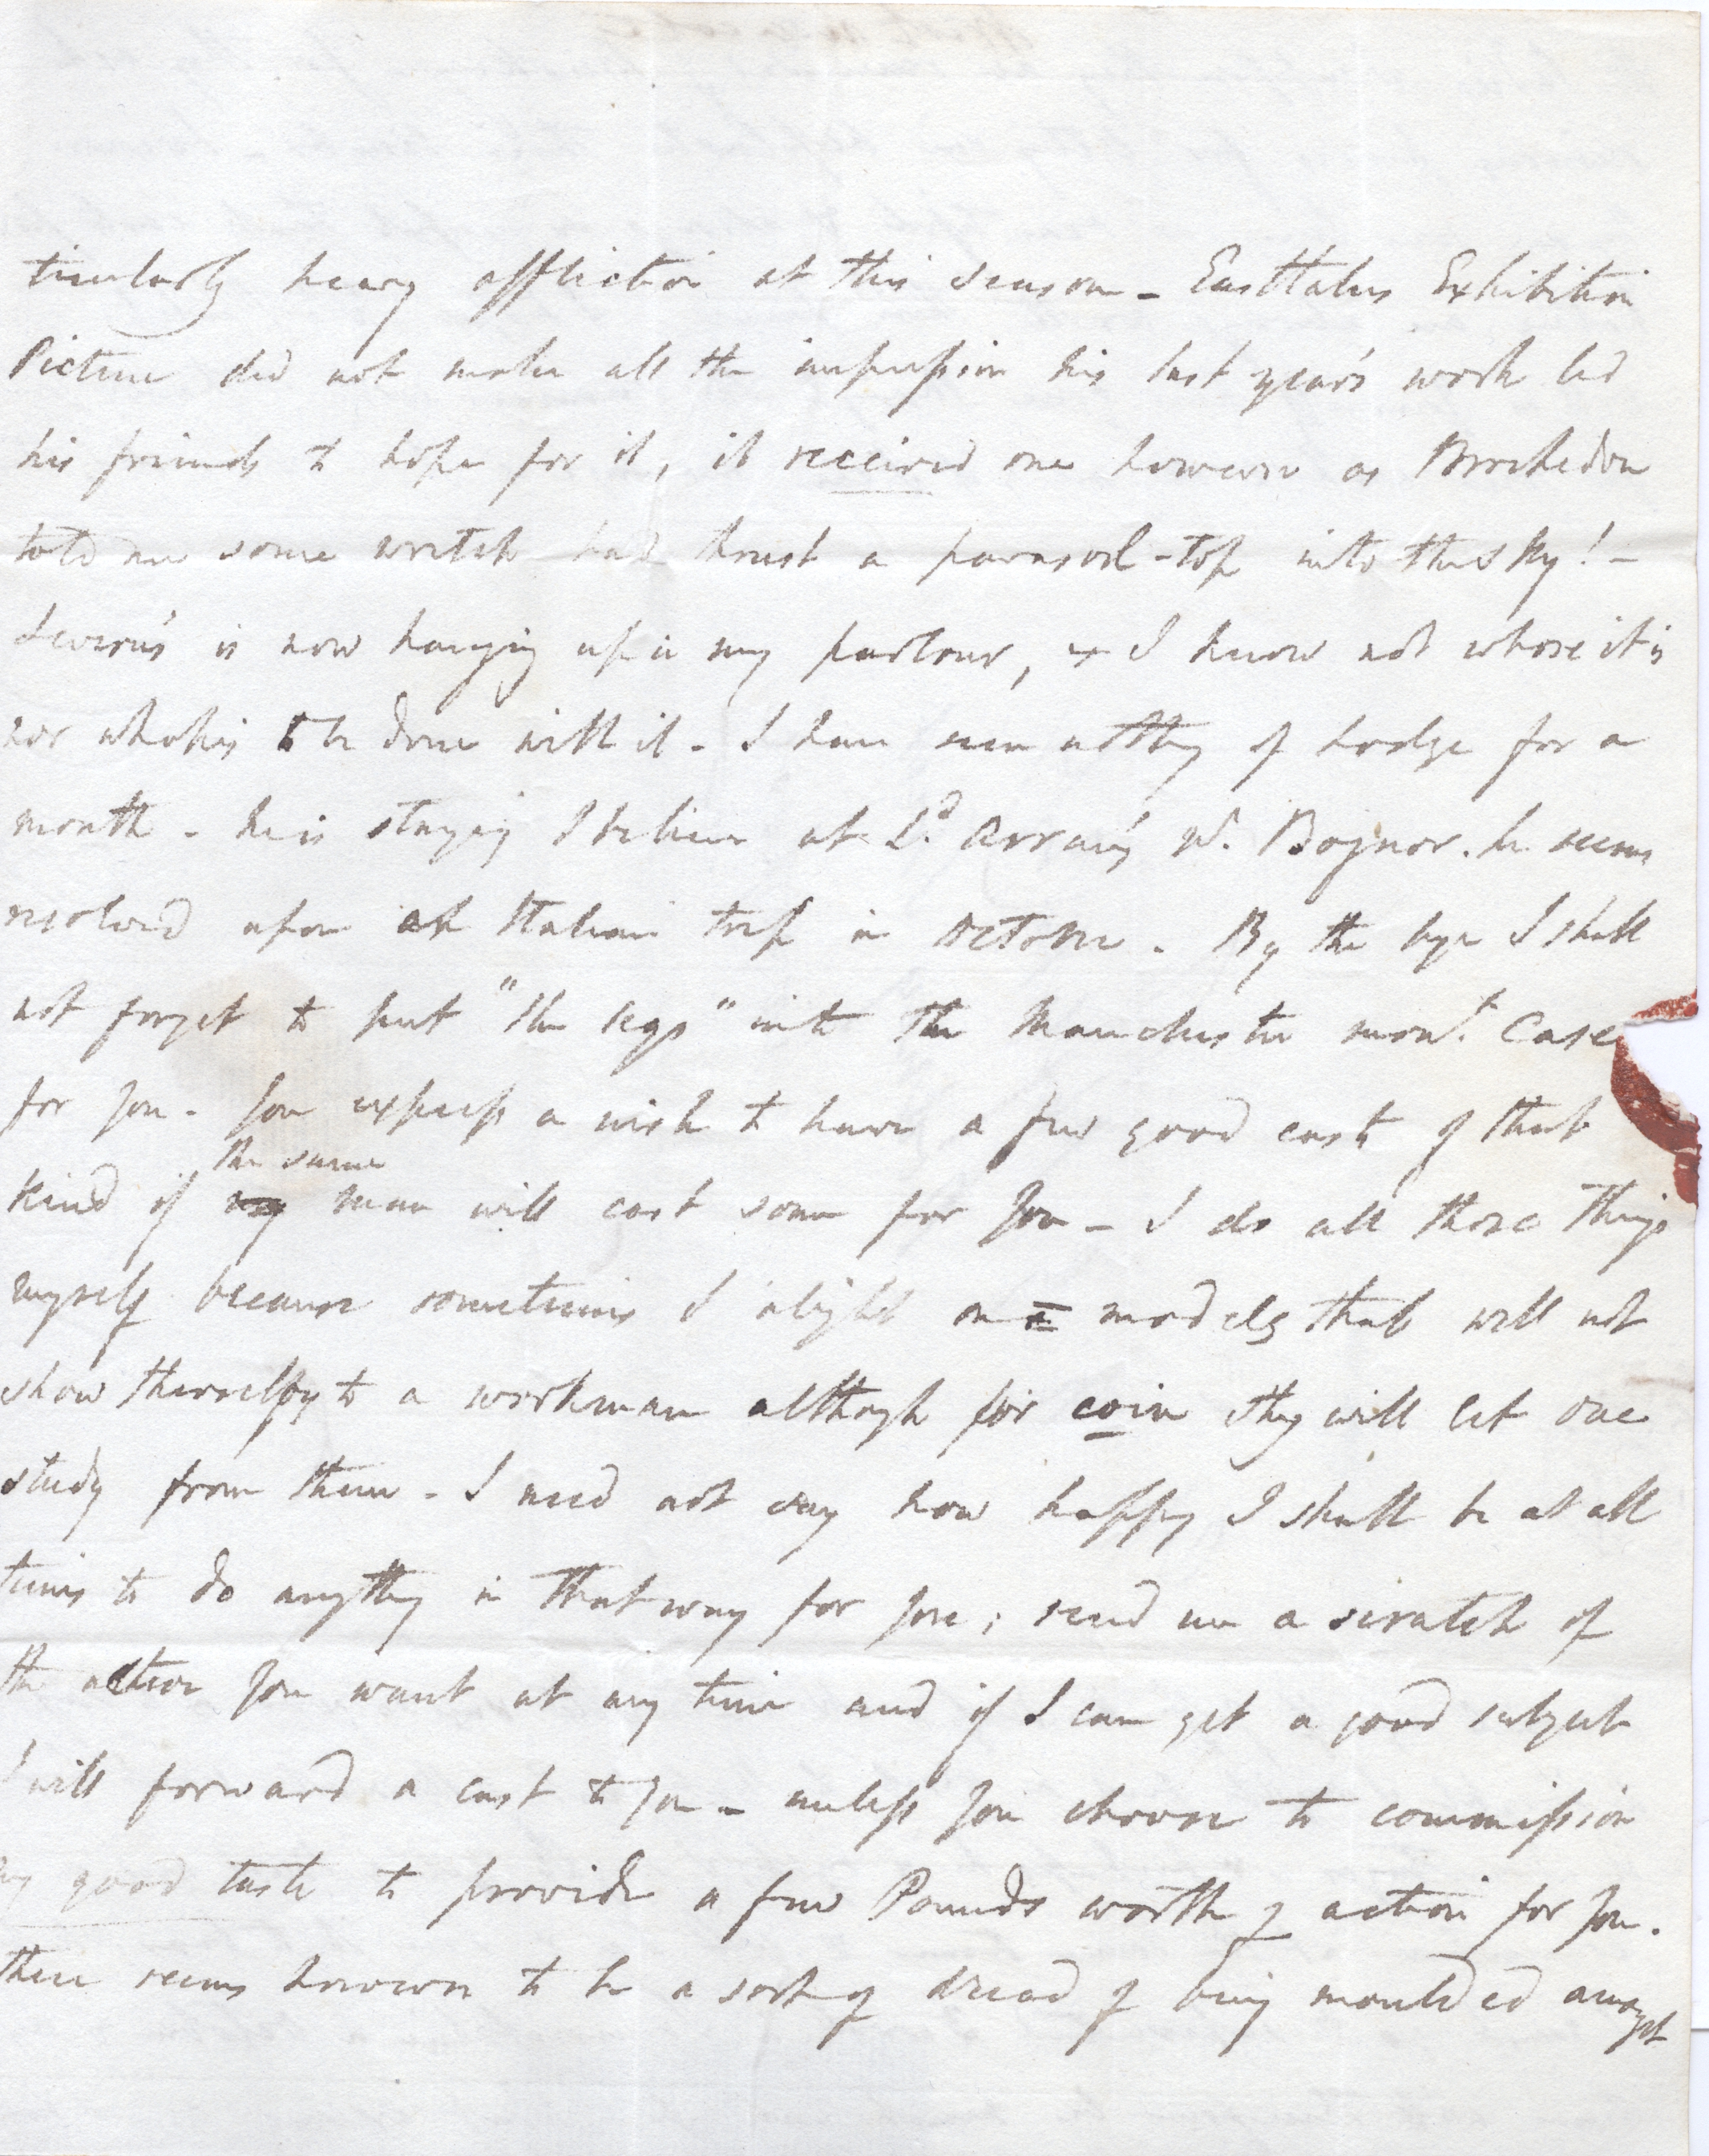 ticularly heavy affliction at this season - Eastlakes Exhibition
Picture did not make all the impression his last year's work led
his friends to hope for it, it received one however as Brockedon
told me some wretch had thrust a parasol-top into the sky! -
Severn's is now hanging up in my parlour, & I know not whose it is
nor what is to be done with it - I have seen nothing of Hodge for a
month - he is staying I believe at Ld. Arran's nr. Bognor. he seems
resolved upon an Italian trip in October - By the bye I shall
not forget to put "the legs" into the Manchester mont. Case
for you - You express a wish to have a few good casts of that
the same
kind if my man will cast some for you - I do all those things
myself because sometimes I alight on a models that will not
show themselves to a workman although for coin they will let one
study from them - I need not say how happy I shall be at all
times to do anything in that way for you; send me a scratch of
the action you want at any time and if I can get a good subject
I will forward a cast to you - unless you choose to commission
my good taste to provide a few Pounds worth of action for you.
there seems however to be a sort of dread of being moulded amongst